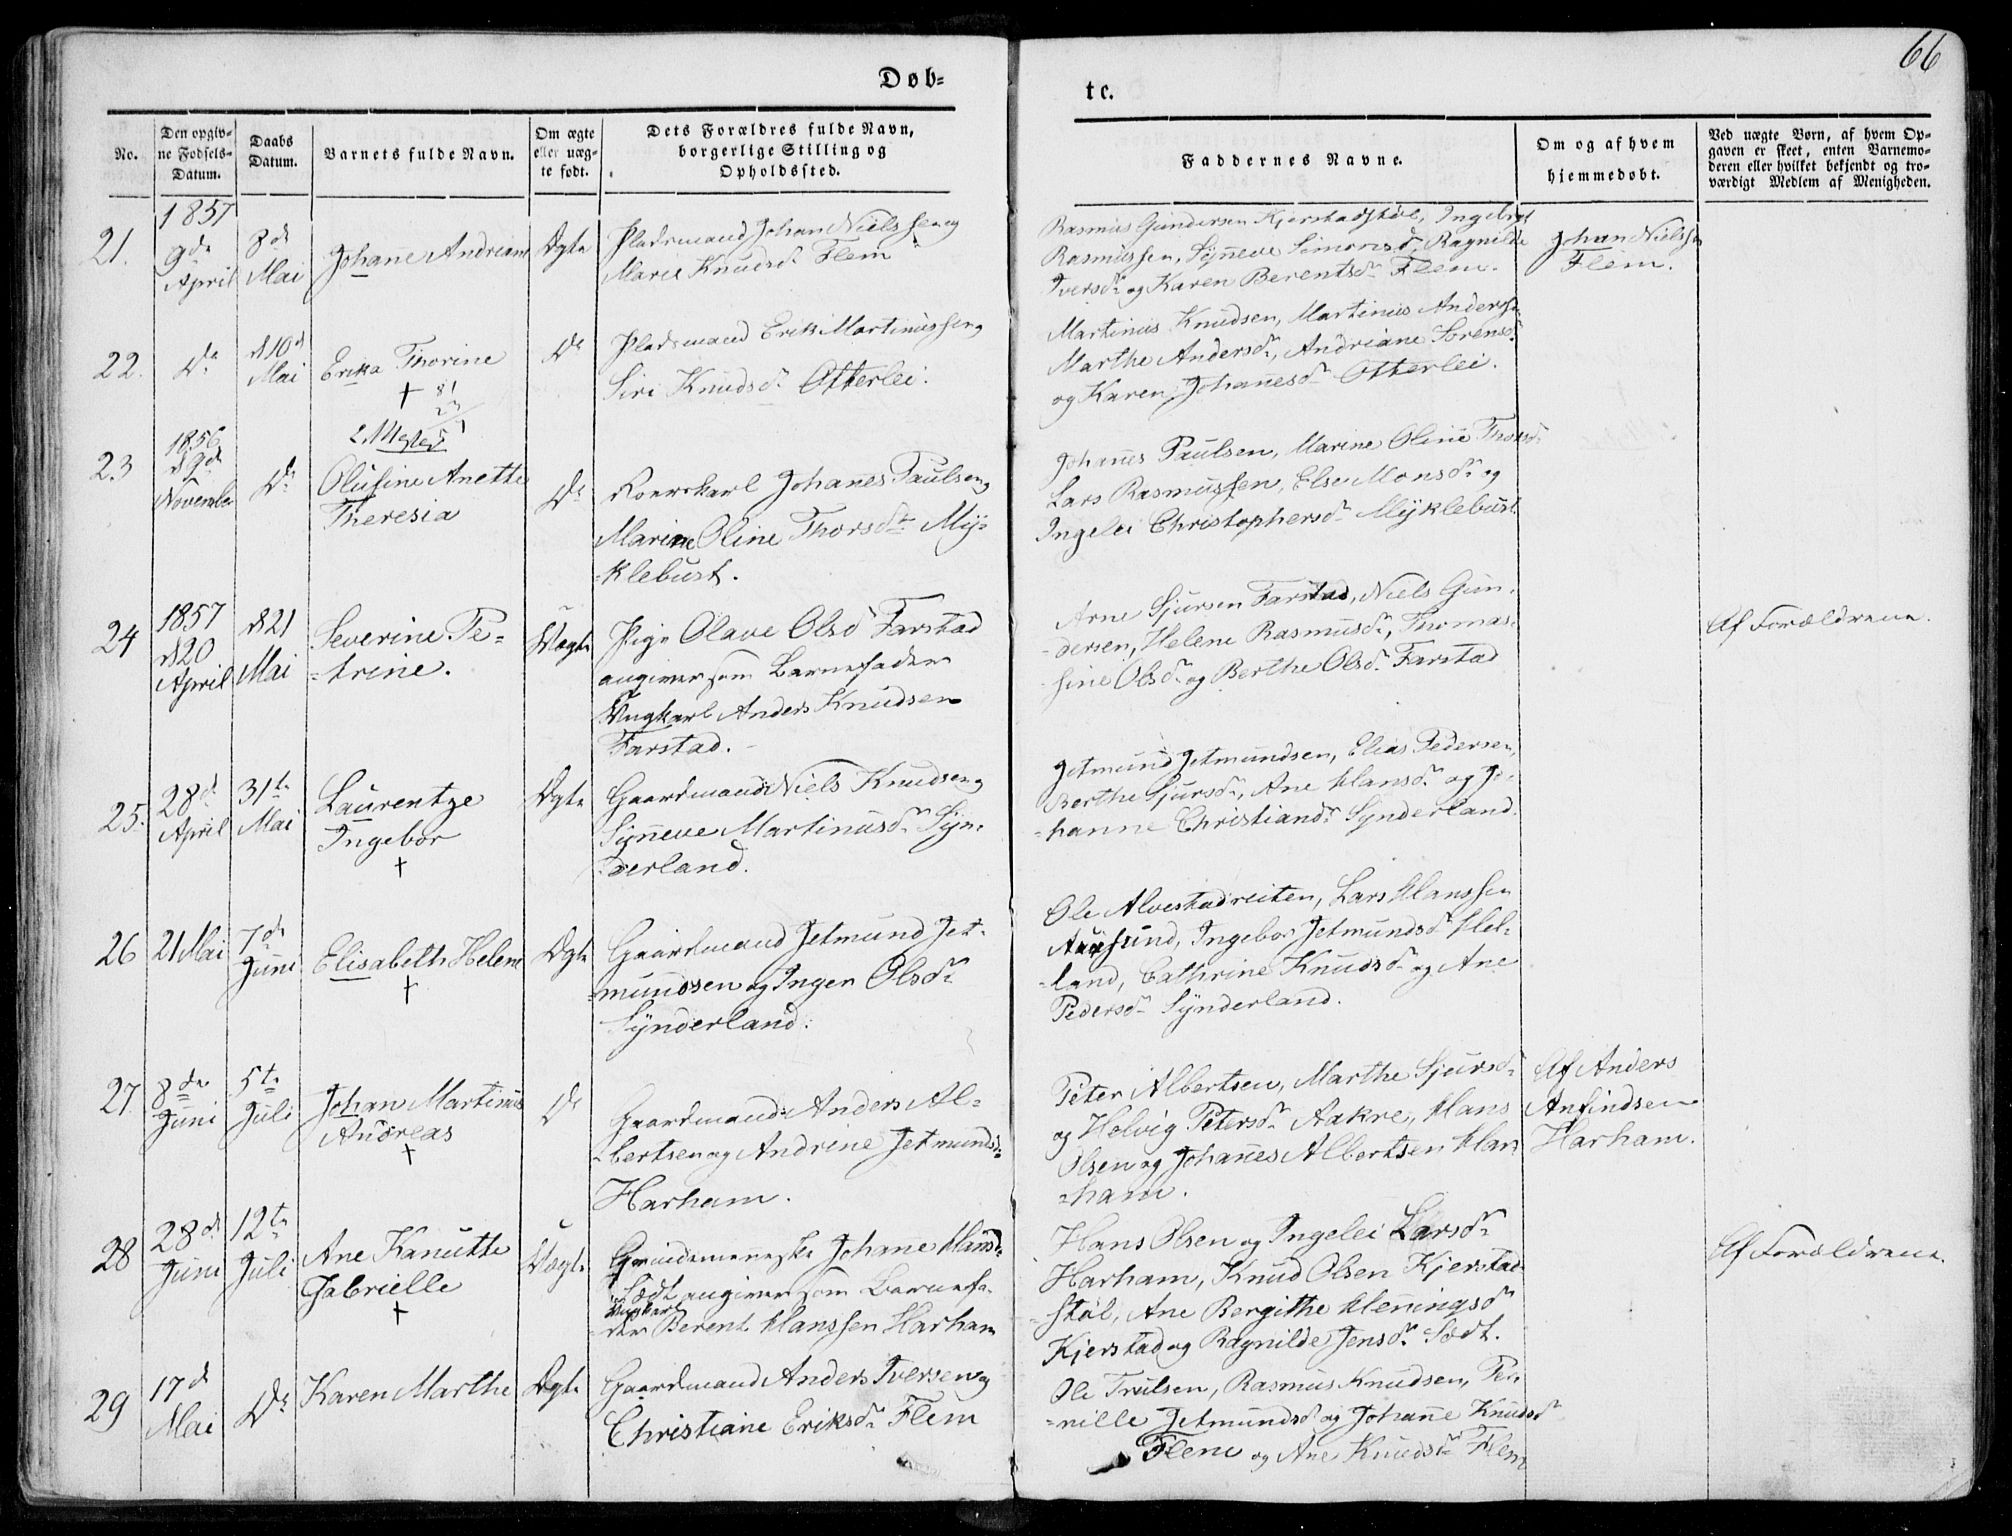 66
Døb-
te.
No.
Den opgiv-
ne Fødsels-
Datum.
Daabs
Datum.
Barnets fulde Navn.
Om ægte
eller uæg-
te født.
Dets Forældres fulde Navn,
borgerlige Stilling og
Opholdssted.
Faddernes Navne.
Om og af hvem
hjemmedøbt.
Ved uægte Børn, af hvem Op-
gaven er skeet, enten Barnemo-
deren eller hvilket bekjendt og tro-
værdigt Medlem af Menigheden.
21.
1857
9de
April
8de
Mai
Johane Andreane
Ægte
Pladsmand Johan Nielssen og
Marie Knudsdr Flem
Rasmus Gundersen Kjerstadstøl, Ingebrgt
Rasmussen, Synneve Simonsdr, Ragnilde
Iversdr og Karen Berentsdr Flem.
Johan Nielssen
Flem.
22.
Do
d 10de
Mai
Erika Thorine
+
Do
Pladsmand Erik Martinussen og
Siri Knudsdr Otterlei.
Martinus Knudsen, Martinus Anderssen
Marthe Andersdr, Andriane Sørensdr
og Karen Johanesdr Otterlei.
23
1856
d 9de
November
Do
Olufine Anette
Theresia
Do
Roerskarl Johanes Paulsen og
Marine Oline Thorsdtr My-
klebust.
Johanes Paulsen, Marine Oline Thorsdr
Lars Rasmussen, Else Monsdr og
Ingelei Christophersdr Myklebust.
24
1857
d 20
April
d 21
Mai
Severine Pe-
trine.
Uægte
Pige Olave Olsdr Farstad
angiver som Barnefader
Ungkarl Anders Knudsen
Farstad.
Arne Sjursen Farstad, Niels Gun-
dersen, Helene Rasmusdr, Thomas-
sine Olsdr og Berthe Olsdr Farstad
Af Forældrene.
25.
28de
April
31te
Mai
Laurentze
Ingebor
+
Ægte
Gaardmand Niels Knudsen og
Synneve Martinusdr Syn-
derland.
Jetmund Jetmundsen, Elias Pedersen,
Berthe Sjursdr, Ane Hansdr og Jo-
hanne Christiandr Synderland.
26
21 Mai
7de
Juni
Elisabeth Helene
+
Ægte
Gaardmand Jetmund Jet-
mundssen og Inger Olsdr
Synderland.
Ole Alvestadreiten, Lars Hanssen
Aursund, Ingebor Jetmundsdr Hel-
land, Cathrine Knudsdr og Ane
Pedersdr Synderland.
27.
8de
Juni
5te
Juli
Johan Martinus
Andreas
+
Do
Gaardmand Anders Al-
bertsen og Andrine Jetmundsdr
Harham.
Peter Albertsen, Marthe Sjursdr
og Helvig Petersdr Aakre, Hans
Olsen og Johanes Albertsen Har-
ham.
Af Anders
Anfindsen
Harham.
28
28de
Juni
12te
Juli
Ane Kanutte
Gabrielle
+
Uægte
Johane Hansdr
Sædt angiver som Barnefa-
Ungkarl
der Berent Hanssen Harham
Hans Olsen og Ingelei Larsdr
Harham, Knud Olsen Kjerstad-
støl, Ane Bergithe Heningsdr
Kjerstad og Ragnilde Jensdr Sædt.
Af Forældrene.
29
17de
Mai
Do
Karen Marthe
Ægte
Gaardmand Anders Iversen og
Christiane Eriksdr Flem
Ole Trulsen, Rasmus Knudsen, Per-
nille Jetmundsdr og Johanne Knudsdr
Flem og Ane Knudsdr Flem